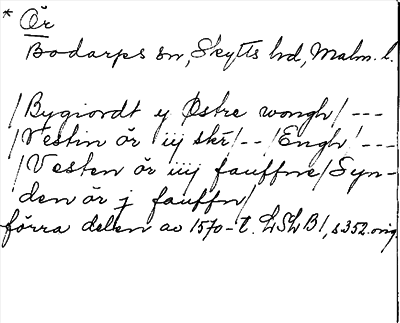 * Ör
Bodarps sn, Skytts hd, Malm. l.
/Bygiordt y Østre wongh/ ---
/Vestin ör iij skr/--/Engh/---
/Vesten ör iiij fauffne/Syn-
den ör j fauffn/
förra delen av 1570-t. LSLB1, s352. orig.